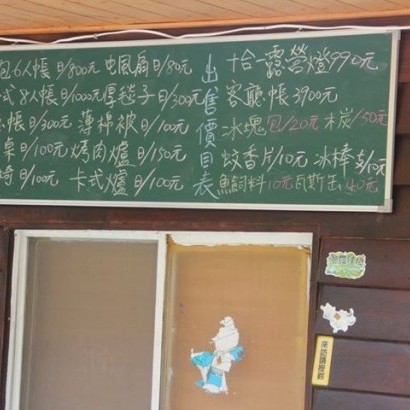 包6人帳 日/800元 电風扇日/80元
式8人帳日/1000元厚毯子日/300元
帳日/300元 薄棉被日/100元
桌日/100元 烤肉爐日/150元
椅日/100元 卡式爐日/100元
出售價目表
十合一露營燈990元
客廳帳3900元
冰塊包/20元 木炭/50元
蚊香片10元 冰棒支/10元
魚飼料10元瓦斯缶40元